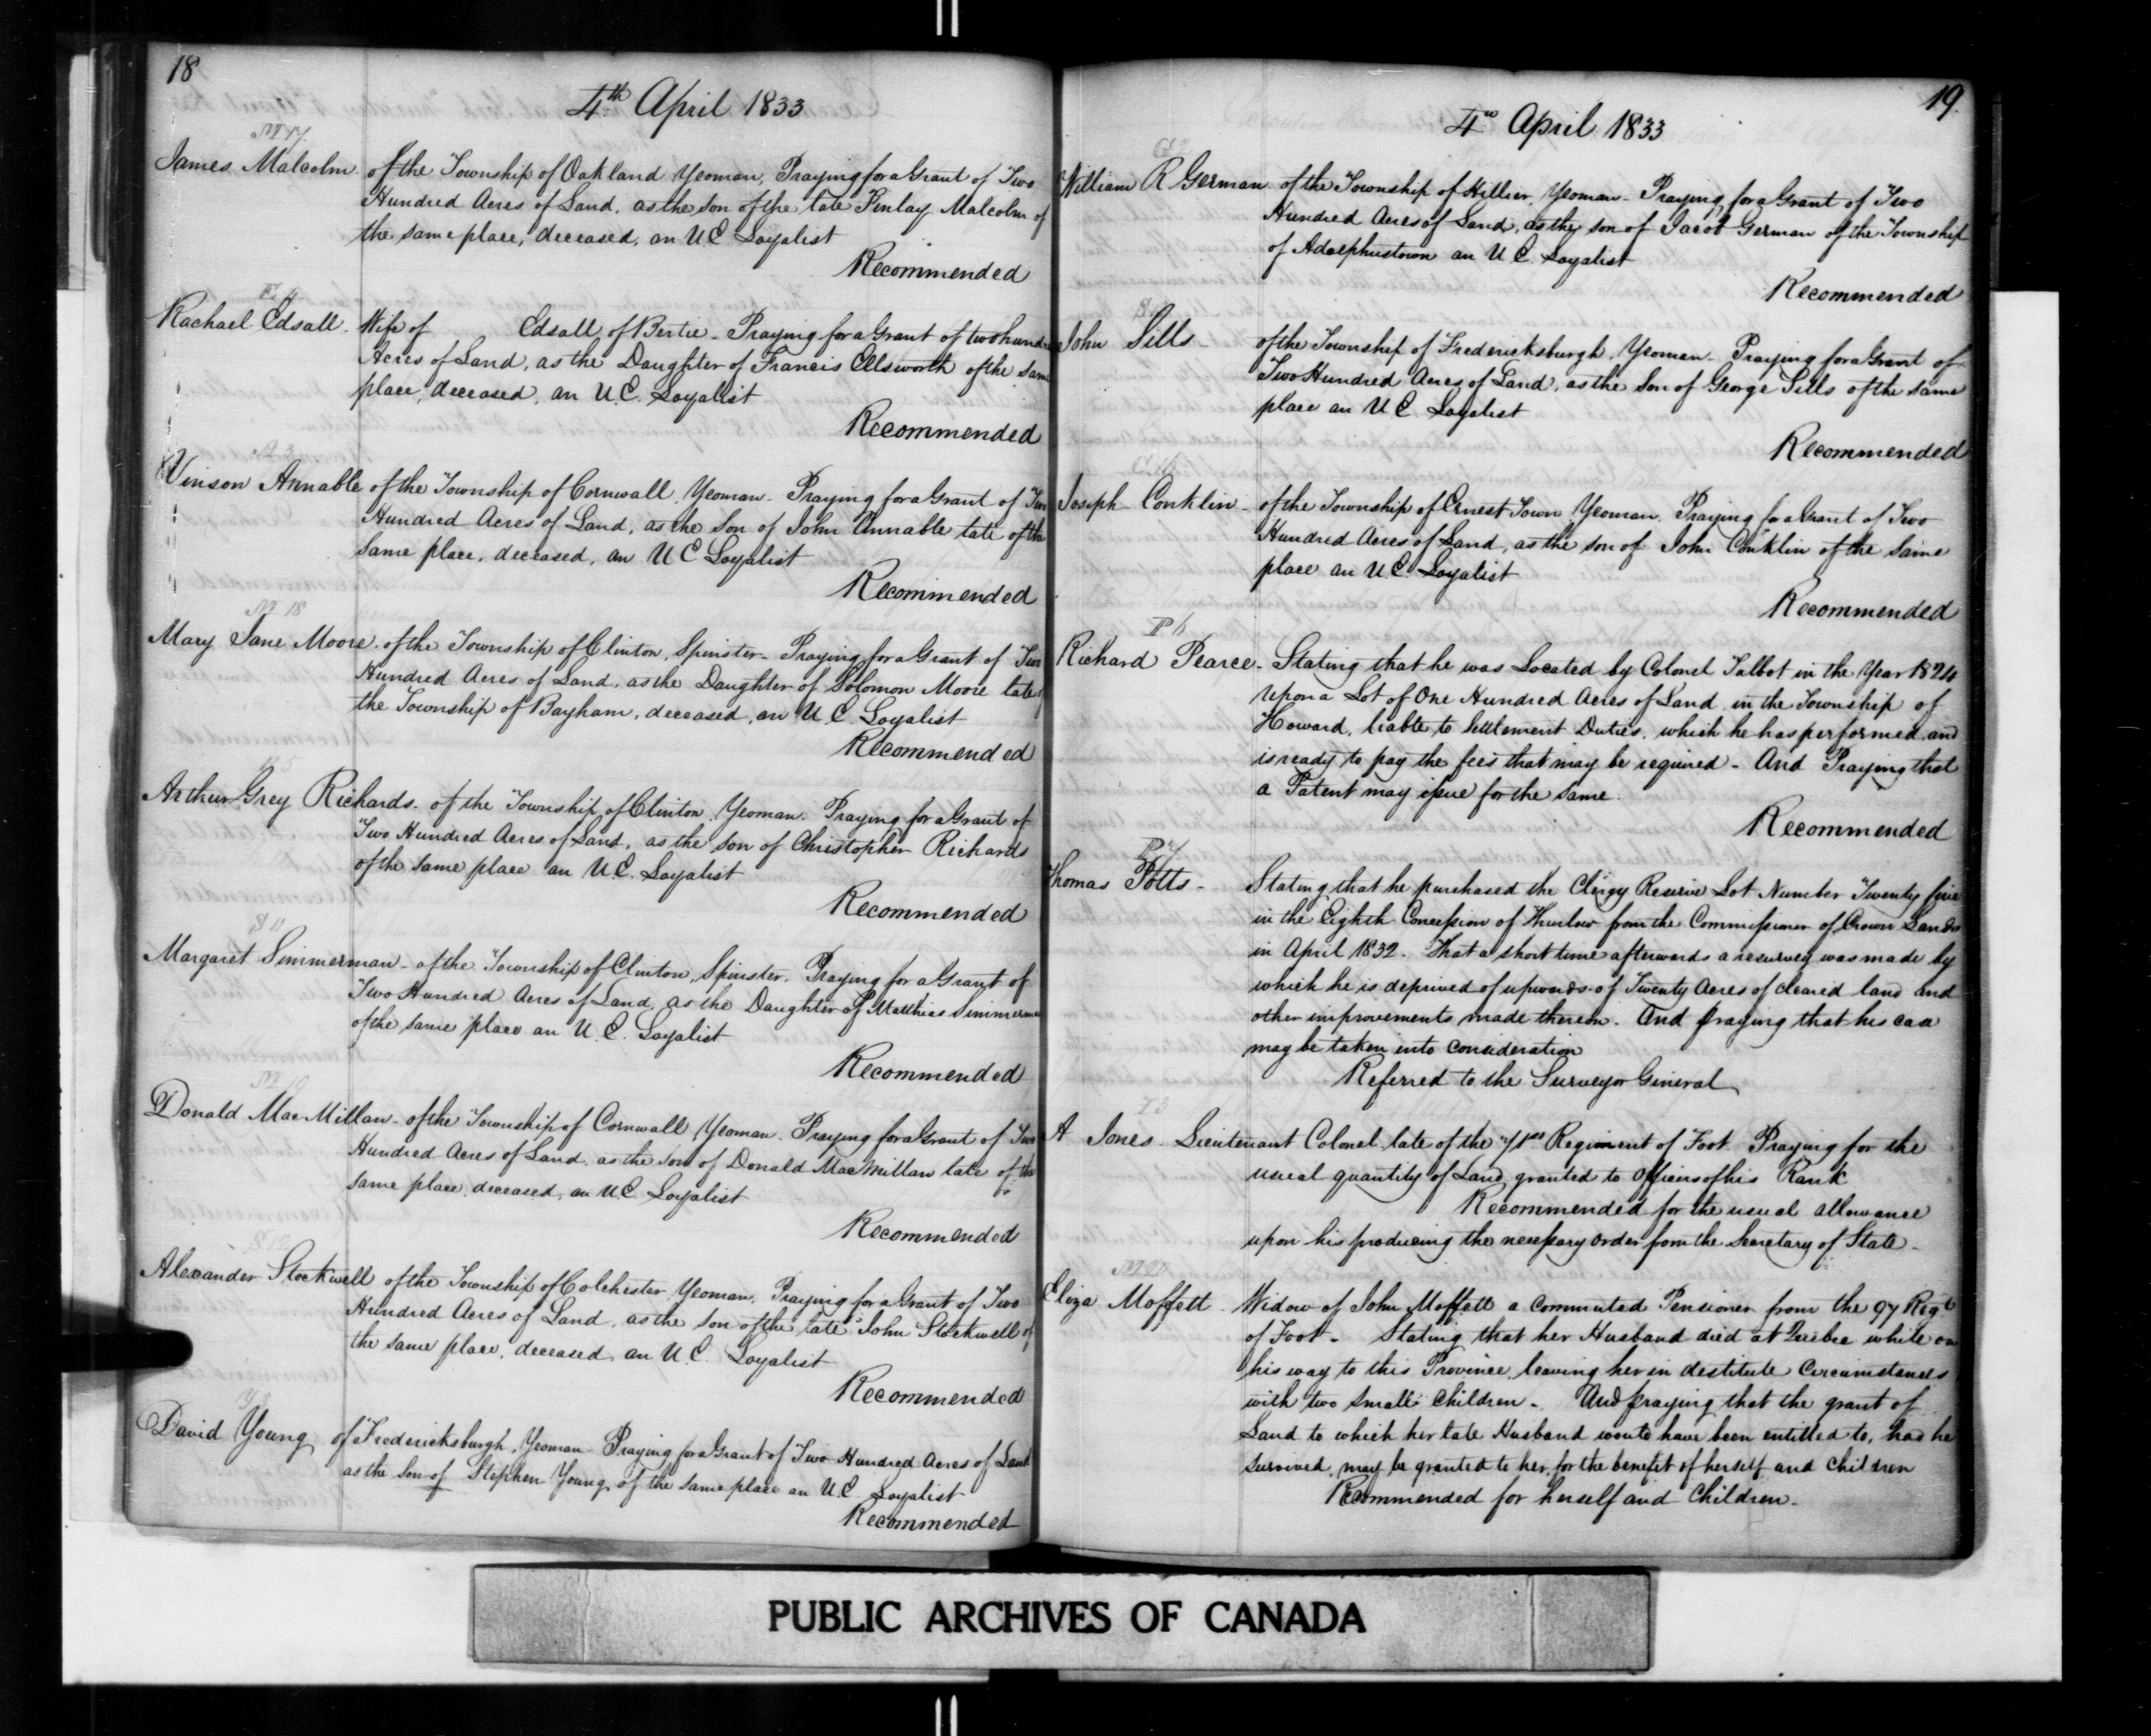 18
4th April 1833
M 17
James Malcolm of the Township of Oakland Yeoman, Praying for a Grant of Two
Hundred Acres of Land, as the son of the late Finlay Malcolm of
the same place, deceased, an U.E. Loyalist
Recommended
E 4
Rachael Edsall. Wife of Edsall of Bertie - Praying for a Grant of two hund
Acres of Land, as the Daughter of Francis Ellsworth of the same
place, deceased, an U.E. Loyalist
Recommended
A 3
Vinson Annable of the Township of Cornwall Yeoman - Praying for a Grant of Two
Hundred Acres of Land, as the Son of John Annable late of the
same place, deceased, an U E Loyalist
Recommended
M 18
Mary Jane Moore. of the Township of Clinton, Spinster - Praying for a Grant of Two
Hundred Acres of Land, as the Daughter of Solomon Moore late
the Township of Bayham, deceased, an U.E. Loyalist
Recommended
Arthur Grey Richards. of the Township of Clinton Yeoman. Praying for a Grant of
Two Hundred Acres of Land, as the son of Christopher Richards
of the same place an U.E. Loyalist
Recommended
S 11
Margaret Simmerman - of the Township of Clinton, Spinster. Praying for a Grant of
Two Hundred Acres of Land, as the Daughter of Matthias Simmerman
of the same place an U.E. Loyalist
Recommended
M 19
Donald MacMillan - of the Township of Cornwall Yeoman. Praying for a Grant of Two
Hundred Acres of Land, as the Son of Donald MacMillan late of the
same place, deceased, an U.E. Loyalist
Recommended
S 12
Alexander Stockwell of the Township of Colchester, Yeoman, Praying for a Grant of Two
Hundred Acres of Land, as the son of the late John Stockwell of
the same place, deceased, an U.E. Loyalist
Recommended
Y 3
David Young of Fredericksburgh, Yeoman - Praying for a Grant of Two Hundred Acres of Land
as the Son of Stephen Young of the same place an U.E. Loyalist
Recommended
19.
4th April 1833
William R German of the Township of Hillier, Yeoman - Praying for a Grant of Two
Hundred Acres of Land, as the son of Jacob German of the Township
of Adolphustown an U E. Loyalist
Recommended
John Sills - of the Township of Fredericksburgh, Yeoman - Praying for a Grant of
Two Hundred Acres of Land, as the Son of George Sills of the same
place an U E. Loyalist
Recommended
Joseph Conklin - of the Township of Ernest Town Yeoman. Praying for a Grant of Two
Hundred Acres of Land, as the son of John Conklin of the same
place an U.E. Loyalist
Recommended
P 6
Richard Pearce - Stating that he was Located by Colonel Talbot in the Year 1824
upon a Lot of One Hundred Acres of Land in the Township of
Howard, liable to Settlement Duties, which he has performed, and
is ready to pay the fees that may be required - And Praying that
a Patent may issue for the same.
Recommended
P 7
Thomas Potts - Stating that he purchased the Clergy Reserve Lot Number Twenty five
in the Eighth Concession of Thurlow from the Commissioner of Crown Lands
in April 1832. That a short time afterwards a resurvey was made by
which he is deprived of upwards of Twenty Acres of cleared land and
other improvements made thereon. And praying that his case
may be taken into consideration
Referred to the Surveyor General
A Jones Lieutenant Colonel late of the 71st Regiment of Foot Praying for the
usual quantity of Land granted to Officers of his Rank
Recommended for the usual allowance
upon his producing the necessary order from the Secretary of State -
M 20
Eliza Moffett - Widow of John Moffett a Commuted Pensioner from the 97 Regt
of Foot - Stating that her Husband died at Quebec while on
his way to this Province, leaving her in destitute Circumstances
with two small Children - And praying that the grant of
Land to which her late Husband would have been entitled to, had he
survived, may be granted to her for the benefit of herself and Children
Recommended for herself and Children -
PUBLIC ARCHIVES OF CANADA